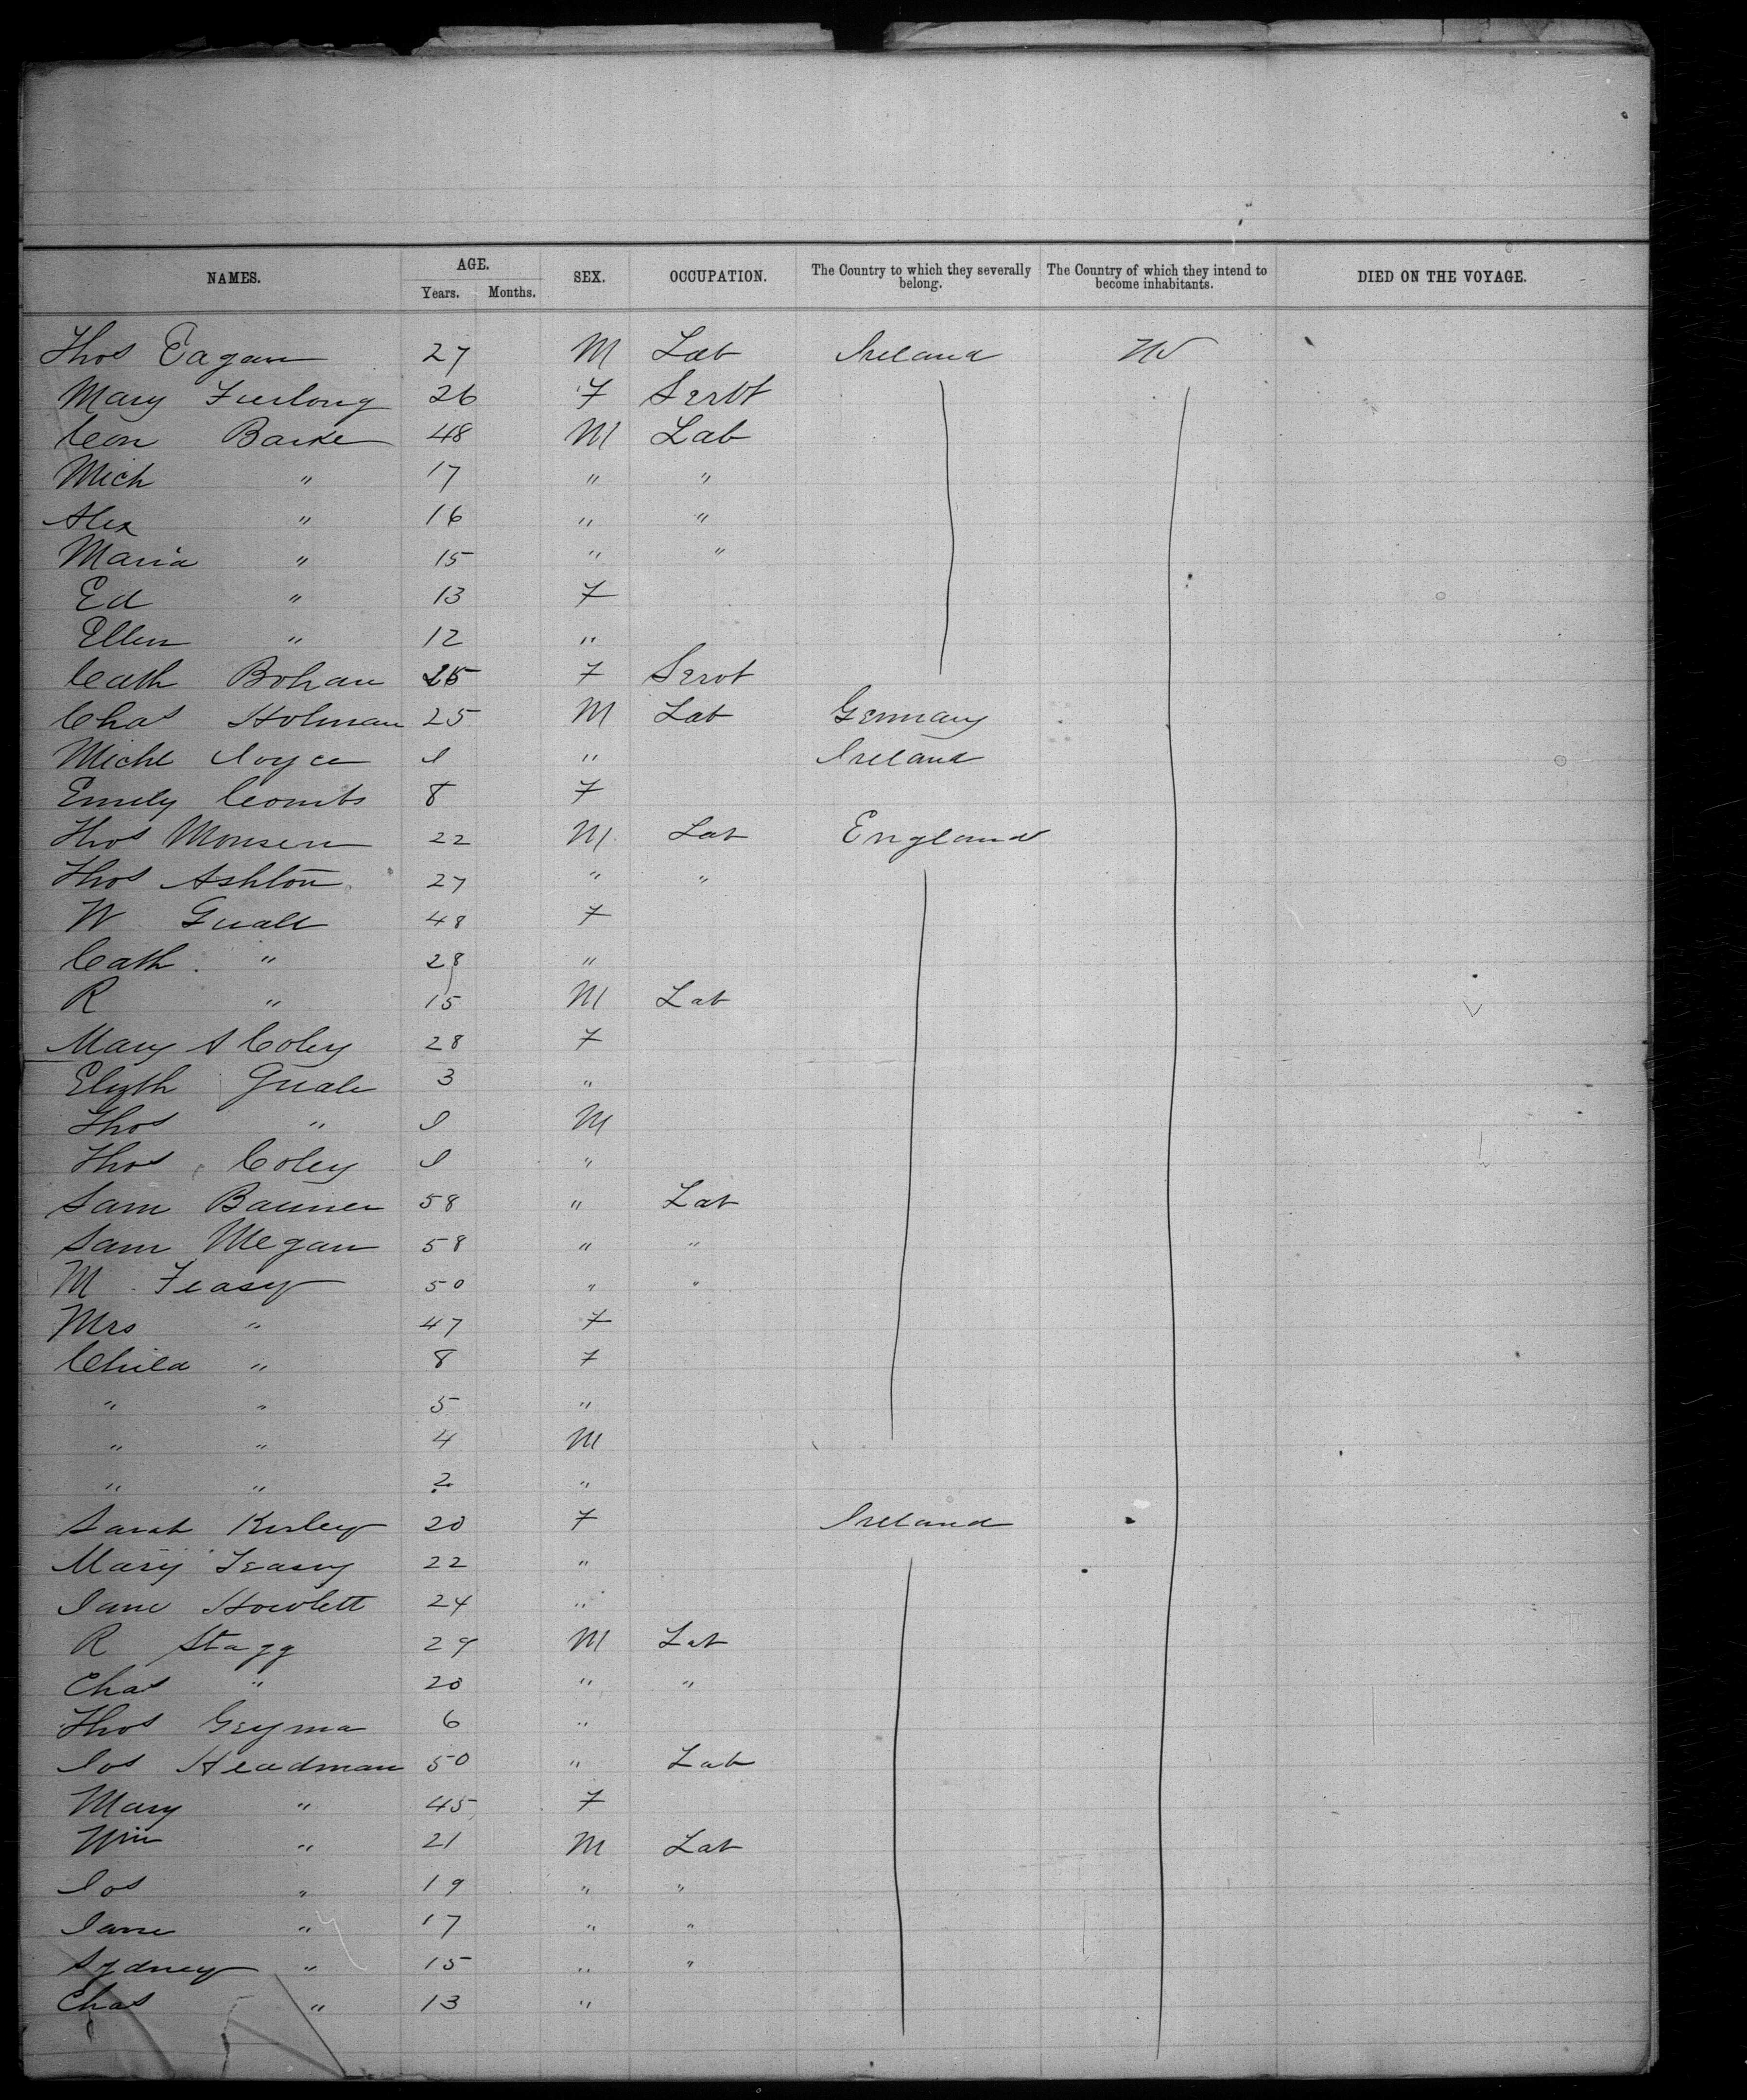 NAMES. AGE. SEX. OCCUPATION. The Country to which they severally belong. The Country of which they intend to become inhabitants. DIED ON THE VOYAGE.
Years. Months.
Thos Eagan 27 M Lab Ireland
Mary Furlong 26 F Servt
Con Barke 48 M Lab
Mich " 17 " "
Alex " 16 " "
Maria " 15 " "
Ed " 13 F
Ellen " 12 "
Cath Bohan 25 F Servt
Chas Holman 25 M Lab Germany
Michl Joyce I " Ireland
Emily Combs 8 F
Thos Monsen 22 M Lab England
Thos Ashton 27 " "
W 48 F
Cath " 28 "
R " 15 M Lab
Mary A Coley 28 F
Elizth 3 "
Thos " I M
Thos Coley I "
Sam 58 " Lab
Sam Megan 58 " "
M Feasy 50 " "
Mrs " 47 F
Child " 8 F
" " 5 "
" " 4 M
" " 2 "
Sarah Kerley 20 F Ireland
Mary 22 "
Jane Howlett 24 "
R Stagg 29 M Lab
Chas " 20 " "
Thos Geyma 6 "
Jos Headman 50 " Lab
Mary " 45 F
Wm " 21 M Lab
Jos " 19 " "
Jane " 17 " "
Sydney " 15 " "
Chas " 13 "